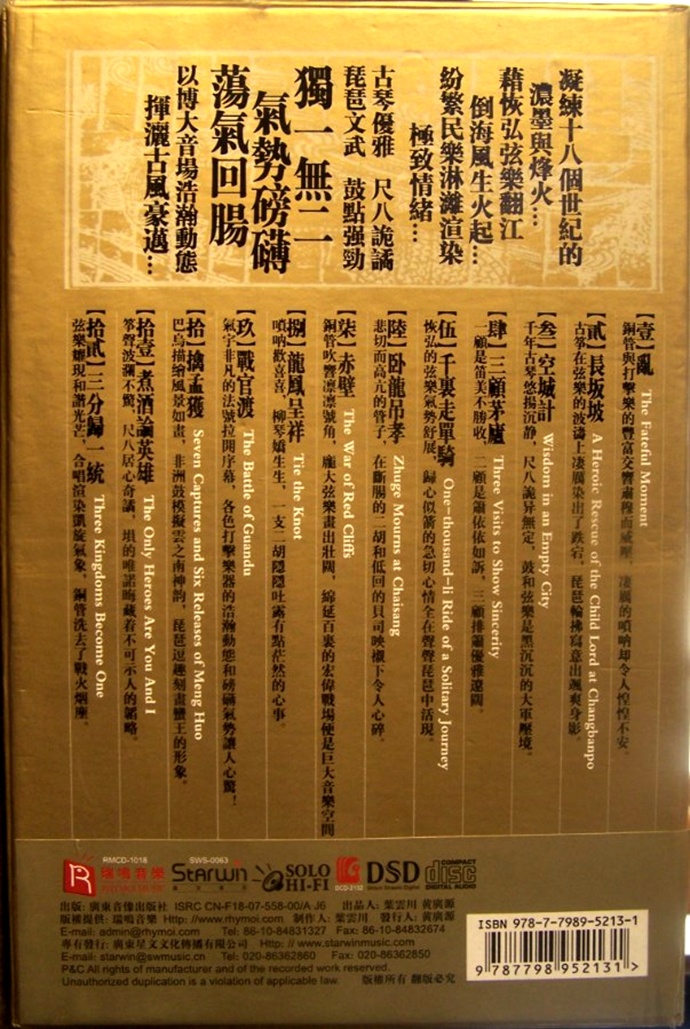 凝練十八個世紀的
濃墨與烽火…
藉恢弘弦樂翻江
倒海風生火起…
紛繁民樂淋灕渲染
極致情緒…
古琴優雅 尺八詭譎
琵琶文武 鼓點强勁
獨一無二
氣勢磅礴
蕩氣回腸
以博大音場浩瀚動態
揮灑古風豪邁…
【壹】亂 The Fateful Moment
銅管與打擊樂的豐富交響肅穆而威壓，凄厲的嗩吶却令人惶惶不安。
【貳】長坂坡 A Heroic Rescue of the Child Lord at Changbanpo
古筝在弦樂的波濤上凄厲染出了跌宕，琵琶輪拂寫意出颯爽身影。
【叁】空城計 Wisdom in an Empty City
千年古琴悠揚沉静，尺八詭异無定，鼓和弦樂是黑沉沉的大軍壓境。
【肆】三顧茅廬 Three Visits to Show Sincerity
一顧是笛美不勝收，二顧是簫依依如訴，三顧排簫優雅遼闊。
【伍】千裏走單騎 One-thousand-li Ride of a Solitary Journey
恢弘的弦樂氣勢舒展，歸心似箭的急切心情全在聲聲琵琶中活現。
【陸】卧龍吊孝 Zhuge Mourns at Chaisang
悲切而高亢的管子，在斷腸的二胡和低回的貝司映襯下令人心碎。
【柒】赤壁 The War of Red Cliffs
銅管吹響凛凛號角，龐大弦樂畫出壯闊，綿延百裏的宏偉戰場便是巨大音樂空間
【捌】龍鳳呈祥 Tie the Knot
嗩吶歡喜喜，柳琴嬌生生，一支二胡隱隱吐露有點茫然的心事。
【玖】戰官渡 The Battle of Guandu
氣宇非凡的法號拉開序幕，各色打擊樂器的浩瀚動態和磅礴氣勢讓人心驚！
【拾】擒孟獲 Seven Captures and Six Releases of Meng Huo
巴烏描繪風景如畫，非洲鼓模擬雲之南神韵，琵琶逗趣刻畫蠻王的形象。
【拾壹】煮酒論英雄 The Only Heroes Are You And I
筝聲波瀾不驚，尺八居心奇譎，塤的唯諾晦藏着不可示人的韜略。
【拾貳】三分歸一統 Three Kingdoms Become One
弦樂耀現和諧光芒，合唱渲染凱旋氣象，銅管洗去了戰火烟塵。
RMCD-1018
瑞鳴音樂
SWS-0063
Starwin
SOLO
HI-FI
DCD-2132
DSD
Direct Stream Digital
COMPACT
disc
DIGITAL AUDIO
出版: 廣東音像出版社 ISRC CN-F18-07-558-00/A·J6 出品人: 葉雲川 黄廣源
版權提供: 瑞鳴音樂 Http: //www.rhymoi.com 制作人: 葉雲川 發行人: 黄廣源
E-mail: admin@rhymoi.com Tel: 86-10-84831327 Fax: 86-10-84832674
專有發行: 廣東星文文化傳播有限公司 Http: // www.starwinmusic.com
E-mail: starwin@swmusic.cn Tel: 020-86362860 Fax: 020-86362850
P&C All rights of manufacturer and of the recorded work reserved.
Unauthorized duplication is a violation of applicable law. 版權所有 翻版必究
ISBN 978-7-7989-5213-1
9 787798 952131 >